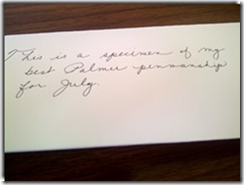 This is a specimen of my
best Palmer penmanship
for July.